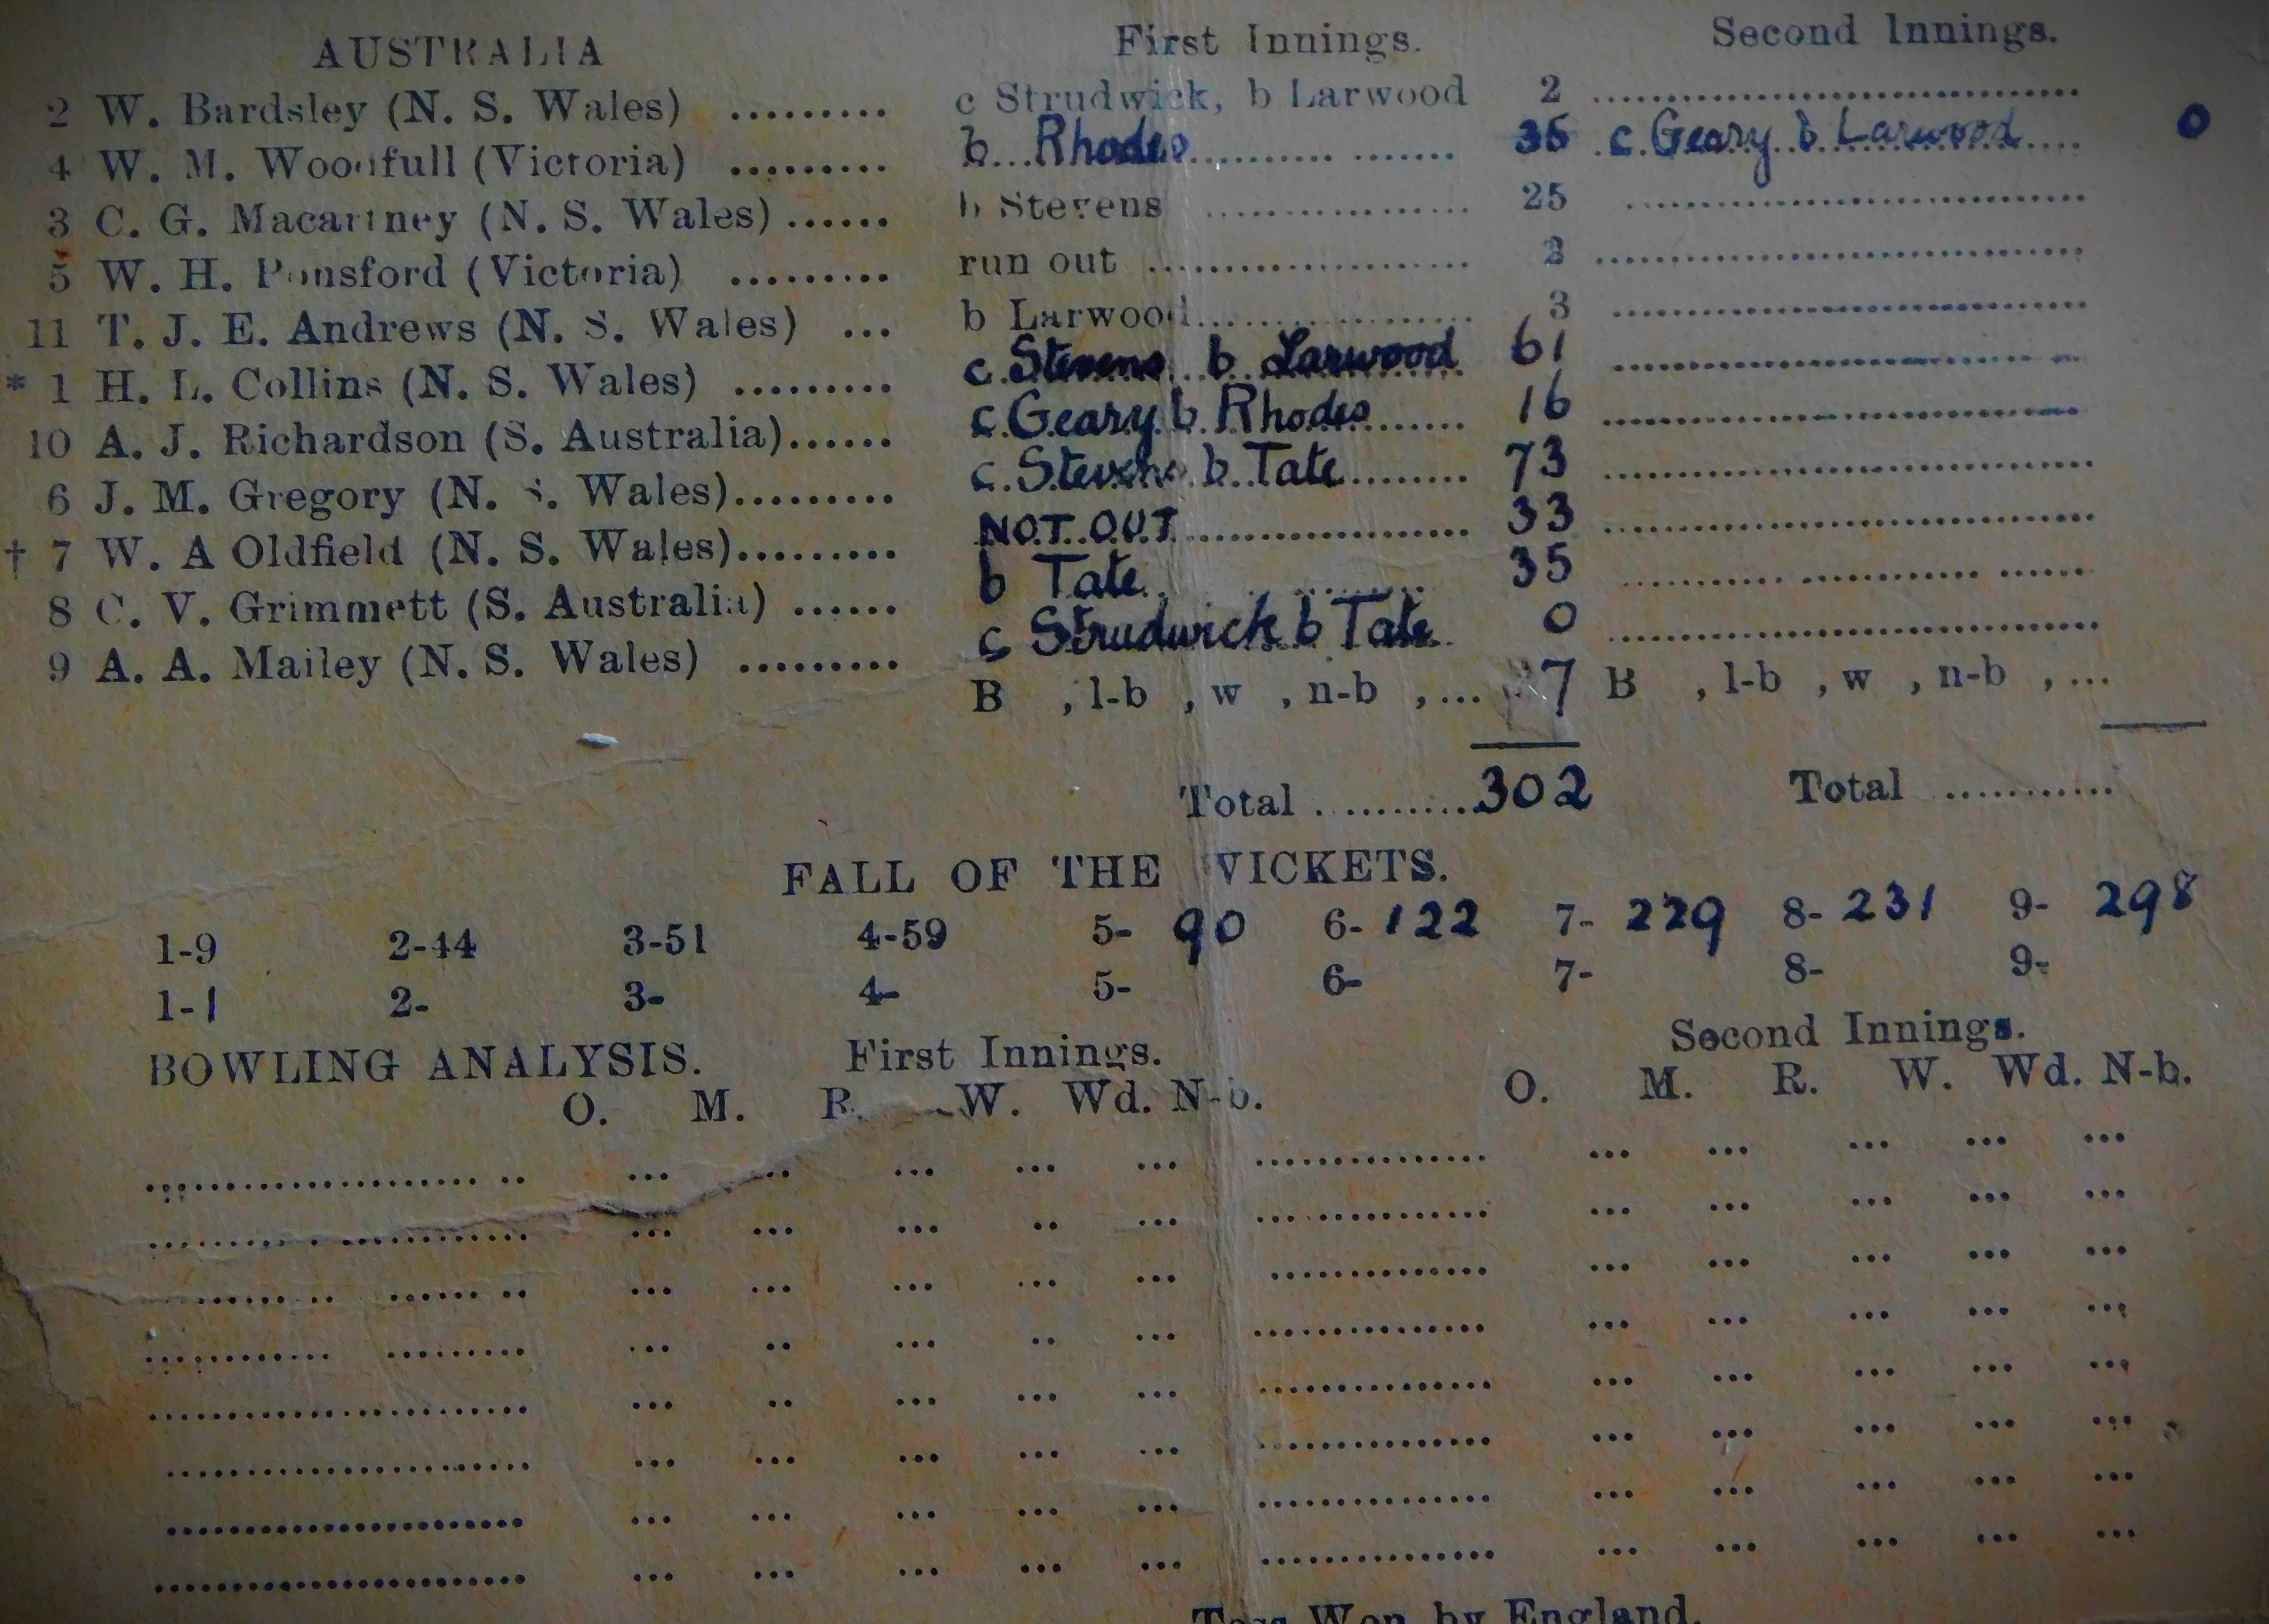 AUSTRALIA First Innings. Second Innings.
2 W. Bardsley (N. S. Wales) ......... c Strudwick, b Larwood 2 ..............................
4 W. M. Woodfull (Victoria) ......... b...Rhodes........... ....... 35 c Geary b Larwood.... 0
3 C. G. Macartney (N. S. Wales) ...... b Stevens .................. 25 ..............................
5 W. H. Ponsford (Victoria) ......... run out ...................... 2 ..............................
11 T. J. E. Andrews (N. S. Wales) ... b Larwood................... 3 ..............................
* 1 H. L. Collins (N. S. Wales) ......... c Stevens b Larwood 61 ..............................
10 A. J. Richardson (S. Australia)...... c Geary b Rhodes....... 16 ..............................
6 J. M. Gregory (N. S. Wales)......... c Stevens b Tate......... 73 ..............................
† 7 W. A Oldfield (N. S. Wales)......... NOT OUT................... 33 ..............................
8 C. V. Grimmett (S. Australia) ...... b Tate ......... 35 ........... ............ ......
9 A. A. Mailey (N. S. Wales) ......... c Strudwick b Tate 0 ..............................
B , l-b , w , n-b , ... 7 B , l-b , w , n-b , ...
Total ..........302 Total ...........
FALL OF THE WICKETS.
1-9 2-44 3-51 4-59 5- 90 6- 122 7- 229 8- 231 9- 298
1-1 2- 3- 4- 5- 6- 7- 8- 9-
BOWLING ANALYSIS. First Innings. Second Innings.
O. M. R. W. Wd. N-b. O. M. R. W. Wd. N-b.
Toss Won by England.